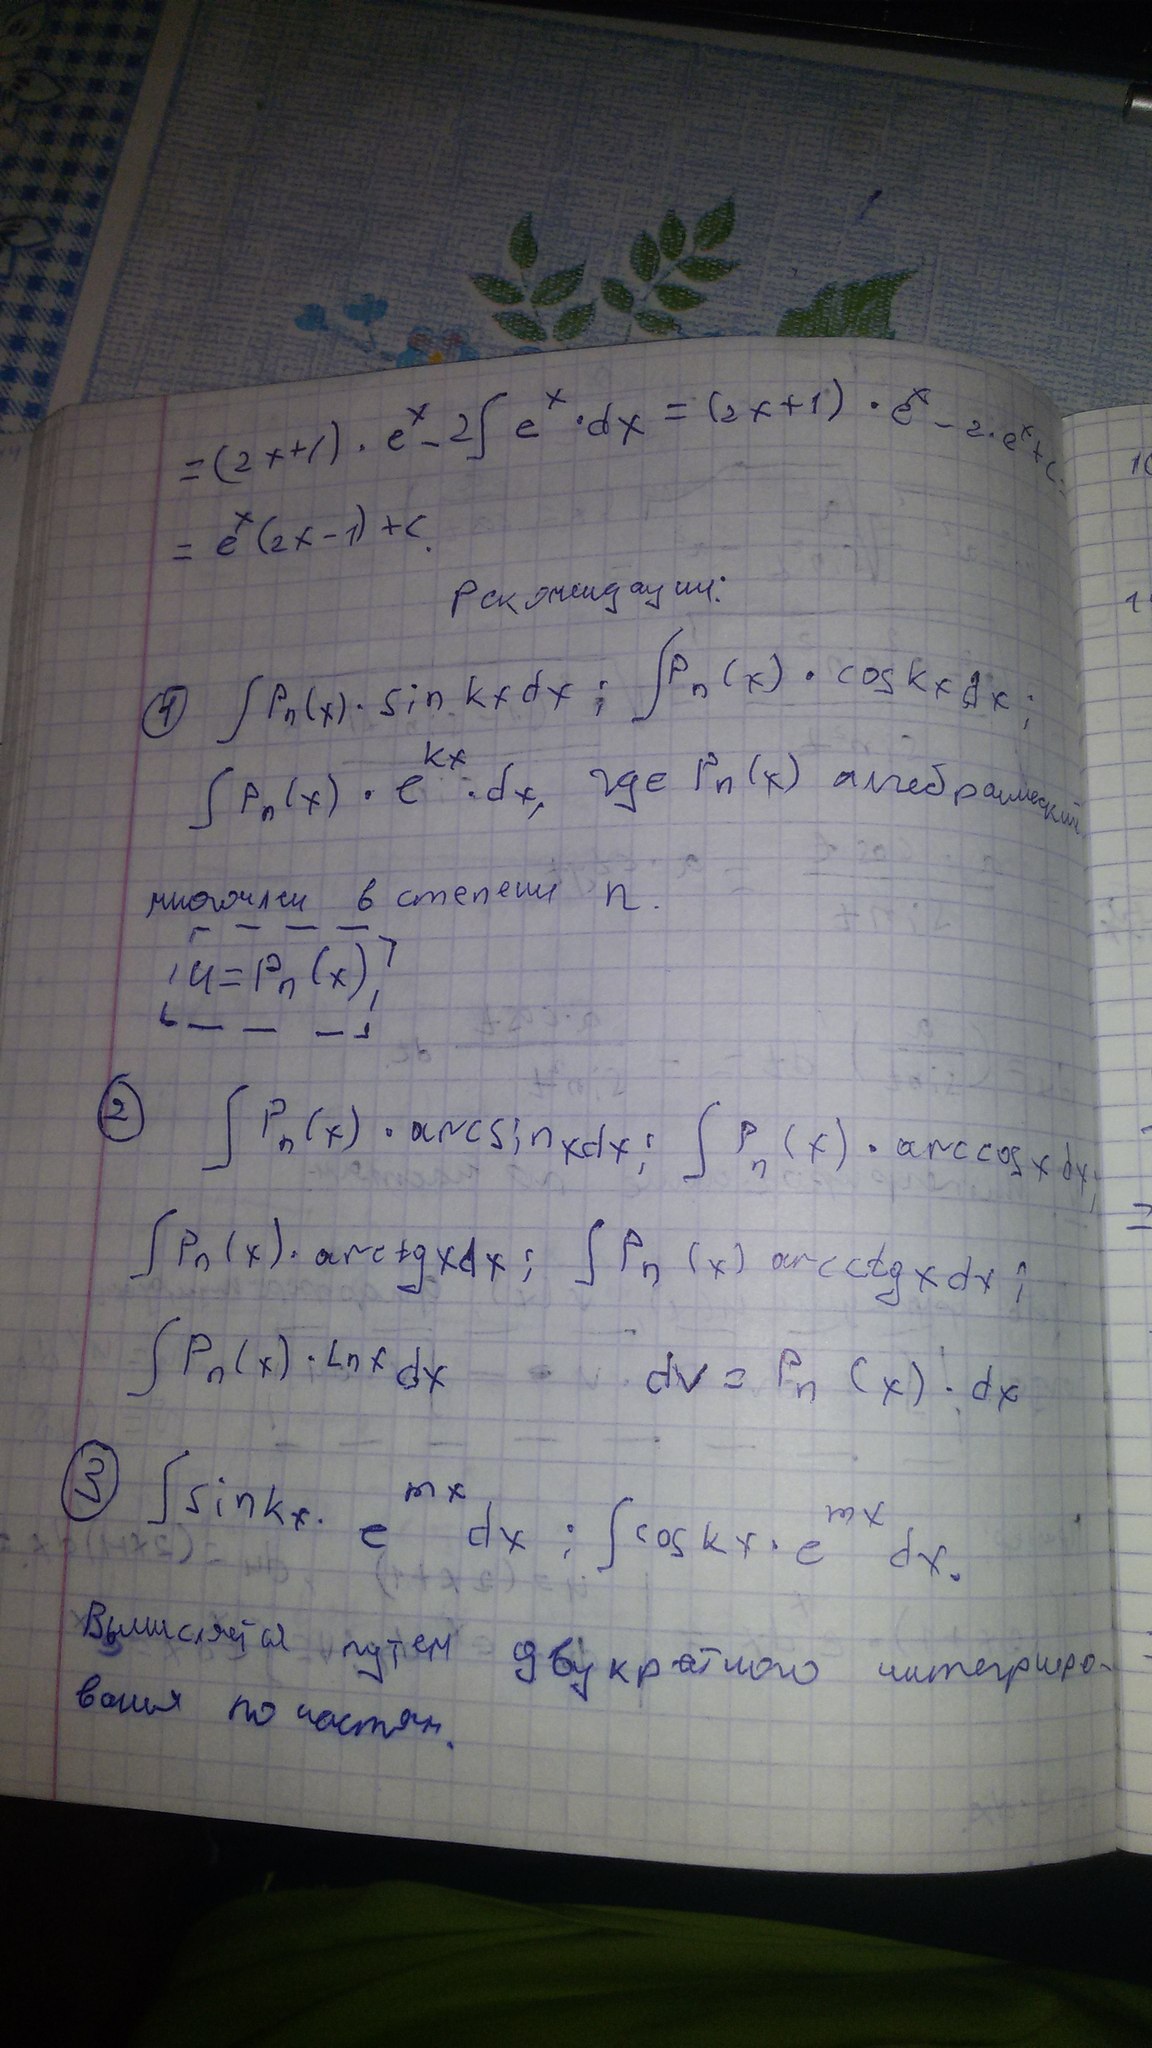 = (2x+1) · e^x - 2∫ e^x · dx = (2x+1) · e^x - 2 · e^x + C =
= e^x (2x-1) + C.
Рекомендации:
① ∫ Pn(x) · sin kx dx ; ∫ Pn(x) · cos kx dx ;
∫ Pn(x) · e^kx · dx, где Pn(x) алгебраический
многочлен в степени n.
u = Pn(x)
② ∫ Pn(x) · arcsin x dx ; ∫ Pn(x) · arccos x dx ;
∫ Pn(x) · arctg x dx ; ∫ Pn(x) arcctg x dx ;
∫ Pn(x) · Ln x dx dv = Pn(x) · dx
③ ∫ sin kx · e^mx dx ; ∫ cos kx · e^mx dx.
Вычисляется путем двукратного интегриро-
вания по частям.